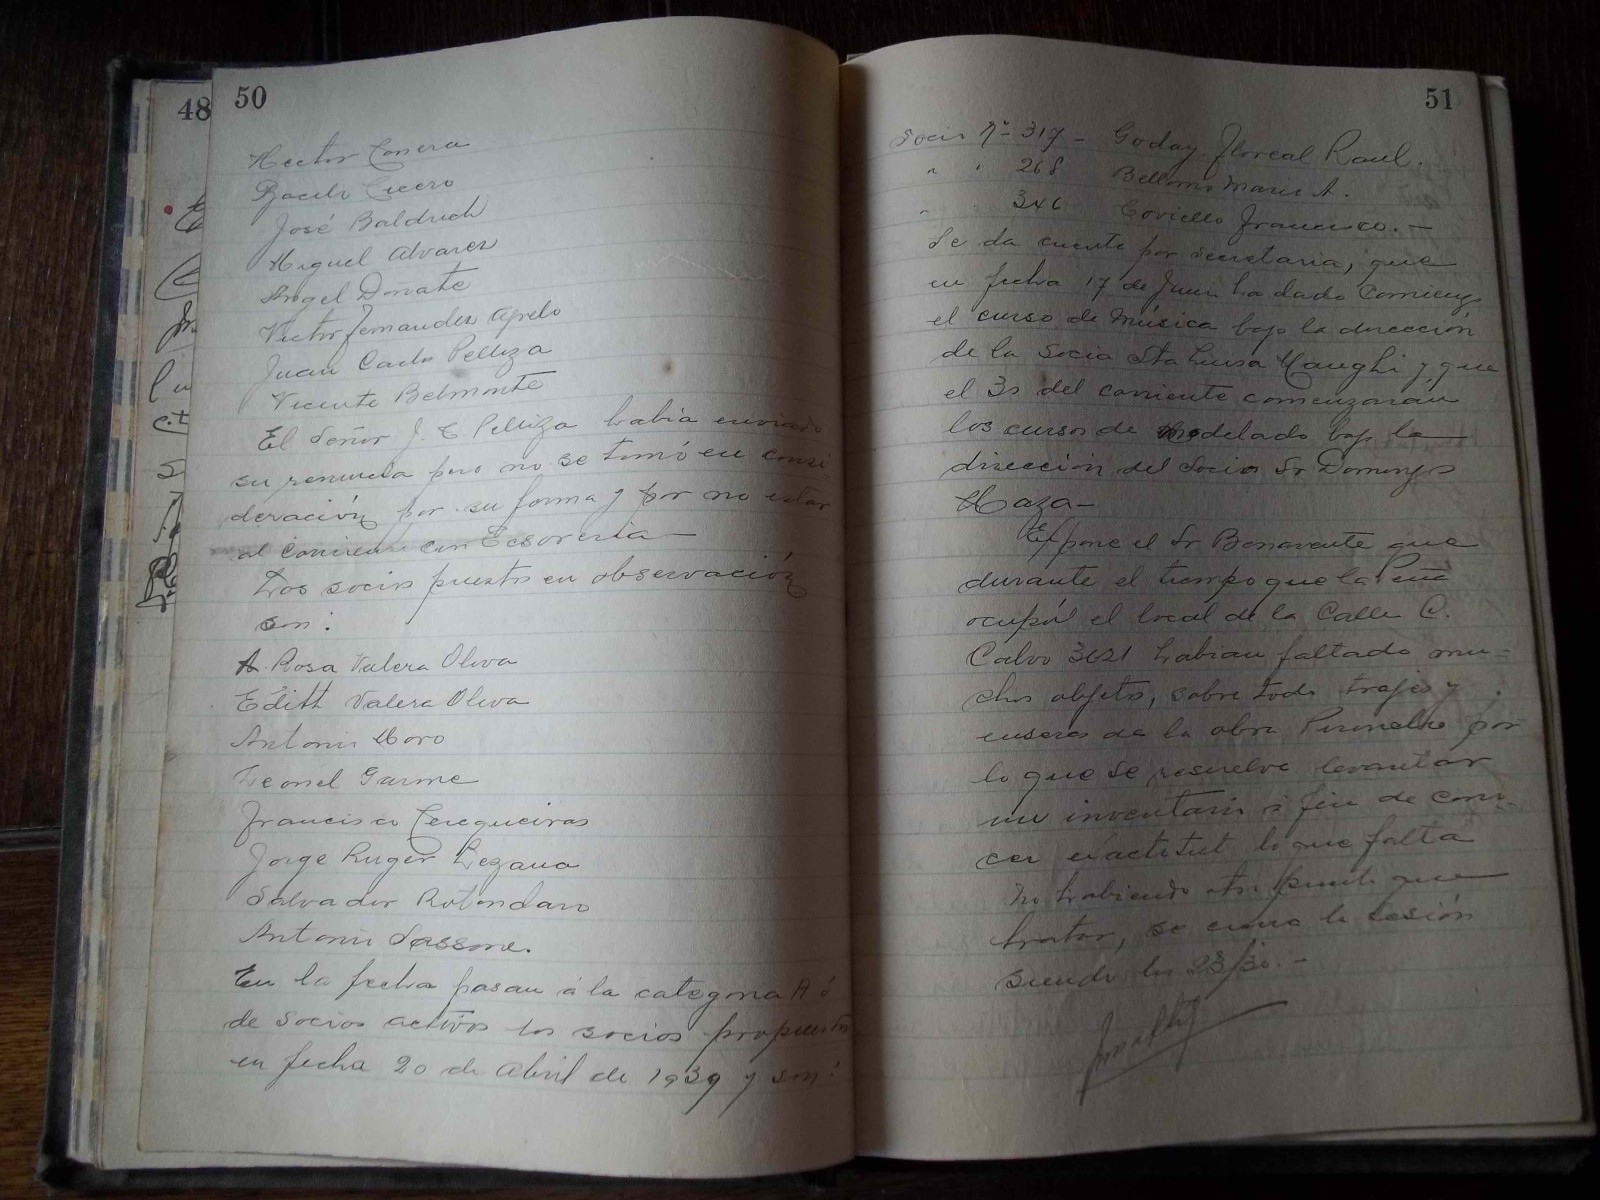 48
50
Hector Correra
Bacilo Cicero
José Baldrich
Miguel Alvarez
Angel Donate
Victor Fernandez Agrelo
Juan Carlos Pelliza
Vicente Belmonte
El Señor J. C. Pelliza habia enviado
su renuncia pero no se tomó en consi
deración por su forma y por no estar
al corriente con Tesoreria
Los socios puestos en observación
son:
Rosa Valera Oliva
Edith Valera Oliva
Antonio Moro
Leonel Garme
Francisco Cerequeiras
Jorge Ruger Lezana
Salvador Rotondaro
Antonio Sassone.
En la fecha pasan á la categoria A ó
de socios activos los socios propuestos
en fecha 20 de Abril de 1939 y son:
51
Socio Nº 317 - Goday Floreal Raul.
" " 268 Bellomo Mario A.
" " 346 Coviello Francisco. -
Se da cuenta por secretaria, que
en fecha 17 de Junio ha dado comienzo
el curso de Música bajo la dirección
de la Socia Sta Luisa Maughi y que
el 30 del corriente comenzarán
los cursos de Modelado bajo la
dirección del Socio Sr Domingo
Maza -
Expone el Sr Benavente que
durante el tiempo que la Peña
ocupó el local de la Calle C.
Calvo 3621 habian faltado mu-
chos objetos, sobre todo trajes y
enseres de la obra por
lo que se resuelve levantar
un inventario á fin de cono-
cer exactitut lo que falta
No habiendo otro punto que
tratar, se cierra la sesión
siendo las 23/30. -